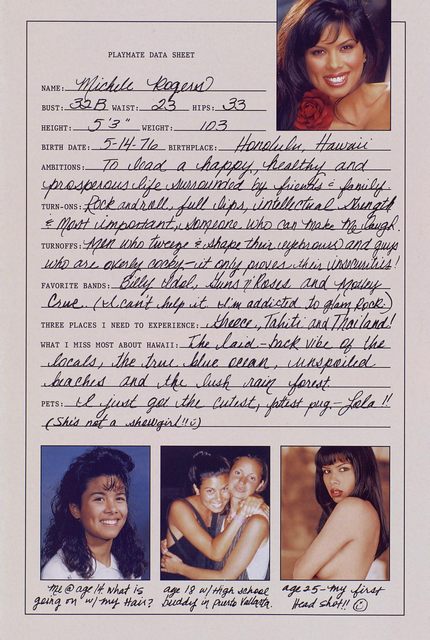 PLAYMATE DATA SHEET
NAME: Michele Rogers
BUST: 32B WAIST: 23 HIPS: 33
HEIGHT: 5'3" WEIGHT: 103
BIRTH DATE: 5-14-76 BIRTHPLACE: Honolulu, Hawaii
AMBITIONS: To lead a happy, healthy and
prosperous life surrounded by friends & family.
TURN-ONS: Rock and roll, full lips, intellectual strength
& most important, someone who can make me laugh.
TURNOFFS: Men who tweeze & shape their eyebrows and guys
who are overly cocky - it only proves their insecurities!
FAVORITE BANDS: Billy Idol, Guns n' Roses and Motley
Crue. (I can't help it I'm addicted to glam rock.)
THREE PLACES I NEED TO EXPERIENCE: Greece, Tahiti and Thailand!
WHAT I MISS MOST ABOUT HAWAII: The laid-back vibe of the
locals, the true blue ocean, unspoiled
beaches and the lush rain forest.
PETS: I just got the cutest, fattest pug - Lola!!
(She's not a showgirl!!☺)
Me @ age 14. What is
going on w/ my hair?
age 18 w/ High school
buddy in Puerto Vallarta.
age 25 - my first
Head shot!! ☺